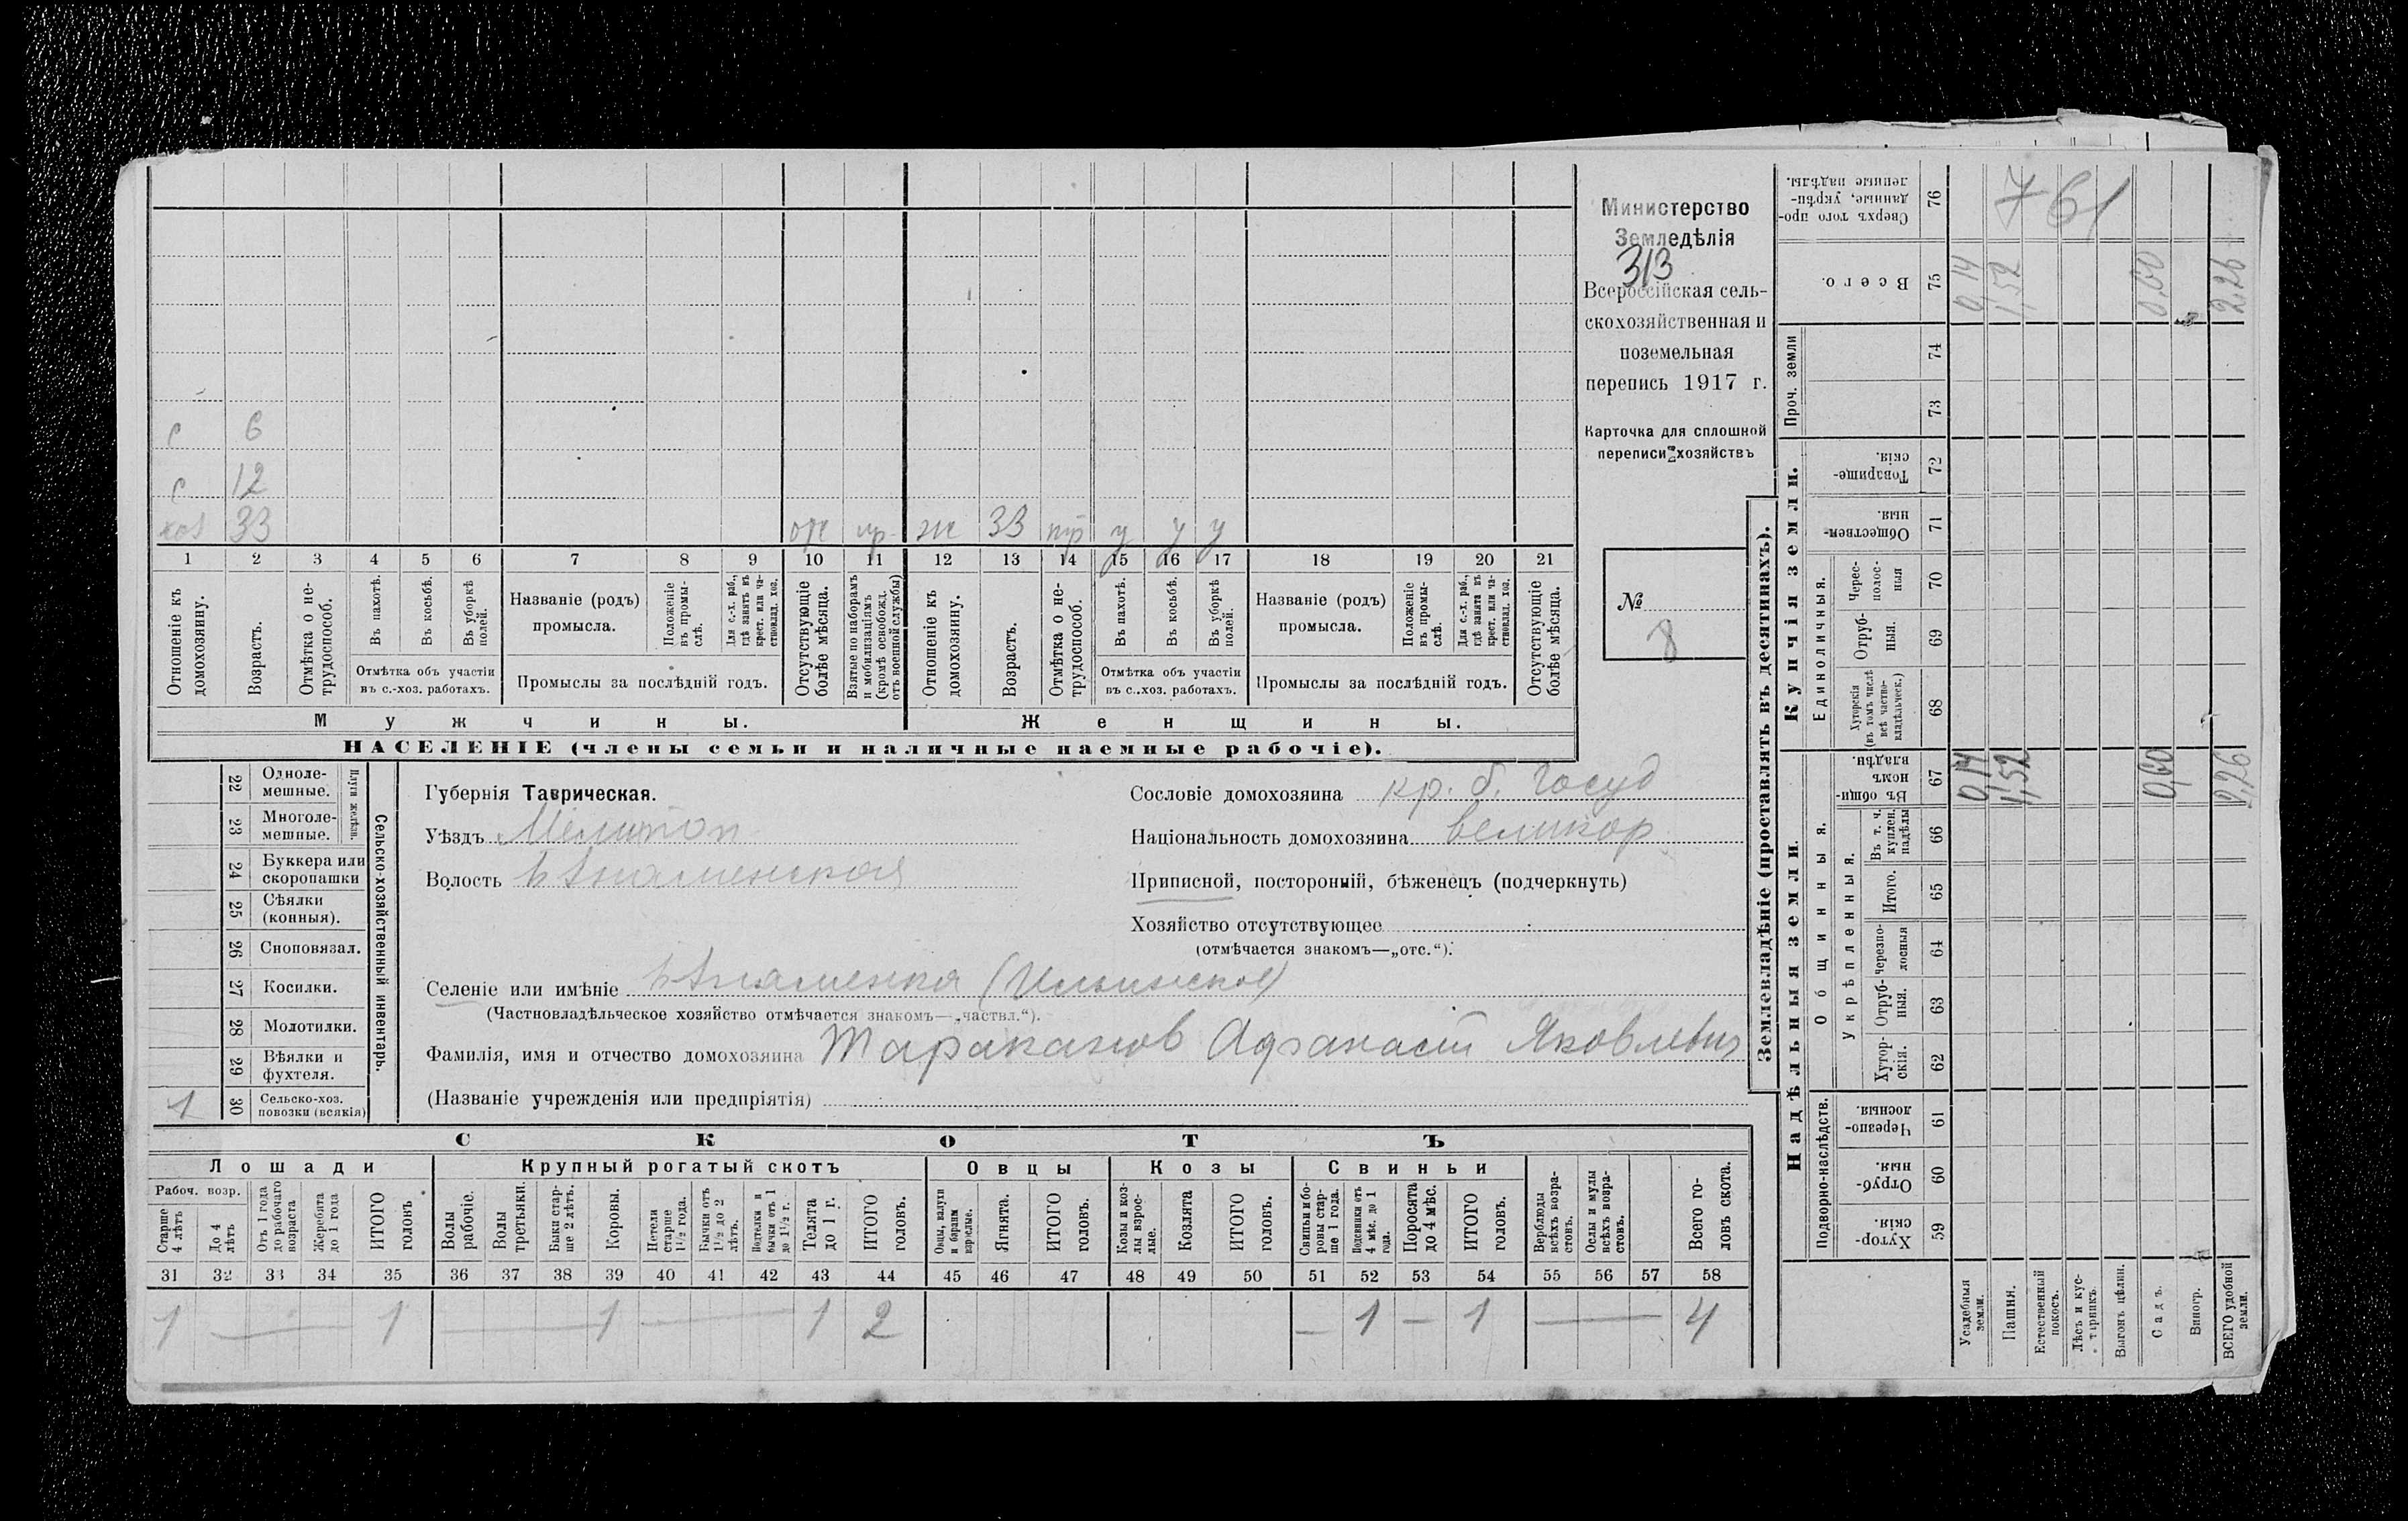 Министерство
Земледѣлія
313
Всероссійская сель-
скохозяйственная и
поземельная
перепись 1917 г.
Карточка для сплошной
переписи хозяйствъ
№
8
с 6
с 12
хоз 33 отс пр ж 33 тр у у у
1 2 3 4 5 6 7 8 9 10 11 12 13 14 15 16 17 18 19 20 21
Отношеніе къ домохозяину.
Возрастъ.
Отмѣтка о не-трудоспособ.
Въ пахотѣ.
Въ косьбѣ.
Въ уборкѣ полей.
Отмѣтка объ участіи
въ с.-хоз. работахъ.
Названіе (родъ)
промысла.
Положеніе въ промы-слѣ.
Для с.-х. раб., гдѣ занятъ въ крест. или ча-стновлад. хоз.
Промыслы за послѣдній годъ.
Отсутствующіе болѣе мѣсяца.
Взятые по наборамъ и мобилизаціямъ (кромѣ освобожд. отъ военной службы)
Отношеніе къ домохозяину.
Возрастъ.
Отмѣтка о не-трудоспособ.
Въ пахотѣ.
Въ косьбѣ.
Въ уборкѣ полей.
Отмѣтка объ участіи
въ с.-хоз. работахъ.
Названіе (родъ)
промысла.
Положеніе въ промы-слѣ.
Для с.-х. раб., гдѣ занята въ крест. или ча-стновлад. хоз.
Промыслы за послѣдній годъ.
Отсутствующіе болѣе мѣсяца.
Мужчины. Женщины.
НАСЕЛЕНІЕ (члены семьи и наличные наемные рабочіе).
Сельско-хозяйственный инвентарь.
22 Одноле-мешные.
23 Многоле-мешные.
24 Буккера или скоропашки
25 Сѣялки (конныя).
26 Сноповязал.
27 Косилки.
28 Молотилки.
29 Вѣялки и фухтеля.
1 30 Сельско-хоз. повозки (всякія)
Губернія Таврическая.
Уѣздъ Мелитоп
Волость Знаменская
Сословіе домохозяина кр. б. госуд
Національность домохозяина великор
Приписной, посторонній, бѣженецъ (подчеркнуть)
Хозяйство отсутствующее
(отмѣчается знакомъ—„отс.“).
Селеніе или имѣніе Знаменка (Ильинское)
(Частновладѣльческое хозяйство отмѣчается знакомъ—„частвл.“).
Фамилія, имя и отчество домохозяина Тараканов Афанасий Яковлевич
(Названіе учрежденія или предпріятія)
СКОТЪ
Лошади Крупный рогатый скотъ Овцы Козы Свиньи
Рабоч. возр.
Старше 4 лѣтъ
До 4 лѣтъ
Отъ 1 года до рабочаго возраста
Жеребята до 1 года
ИТОГО головъ
Волы рабочіе.
Волы третьяки.
Быки стар-ше 2 лѣтъ.
Коровы.
Нетели старше 1½ года.
Бычки отъ 1½ до 2 лѣтъ.
Подтелки и бычки отъ 1 до 1½ г.
Телята до 1 г.
ИТОГО головъ.
Овцы, валухи и бараны взрослые.
Ягнята.
ИТОГО головъ.
Козы и коз-лы взрос-лые.
Козлята
ИТОГО головъ.
Свиньи и бо-ровы стар-ше 1 года.
Подсвинки отъ 4 мѣс. до 1 года.
Поросята до 4 мѣс.
ИТОГО головъ.
Верблюды всѣхъ возра-стовъ.
Ослы и мулы всѣхъ возра-стовъ.
Всего го-ловъ скота.
31 32 33 34 35 36 37 38 39 40 41 42 43 44 45 46 47 48 49 50 51 52 53 54 55 56 57 58
1 — 1 — 1 — 1 2 — 1 — 1 — 4
Землевладѣніе (проставлять въ десятинахъ).
Купчія земли.
Надѣльныя земли.
Сверхъ того про-данные, укрѣп-ленные надѣлы. 76
761
Всего. 75 0,14 1,52 0,60 2,26
Проч. земли
74
73
Товарище-скія. 72
Обществен-ныя. 71
Единоличныя.
Черес-полос-ныя 70
Отруб-ныя. 69
Хуторскія (въ томъ числѣ всѣ частно-владѣльческ.) 68
Общинныя.
Въ общи-номъ владѣн. 67 0,14 1,52 0,60 2,26
Укрѣпленныя.
Въ т. ч. куплен. надѣлы 66
Итого. 65
черезпо-лосныя 64
Отруб-ныя. 63
Хутор-скія. 62
Подворно-наслѣдств.
Черезпо-лосныя. 61
Отруб-ныя. 60
Хутор-скія. 59
Усадебныя земли.
Пашня.
Естественный покосъ.
Лѣсъ и кус-тарникъ.
Выгонъ цѣлин.
Садъ.
Виногр.
ВСЕГО удобной земли.